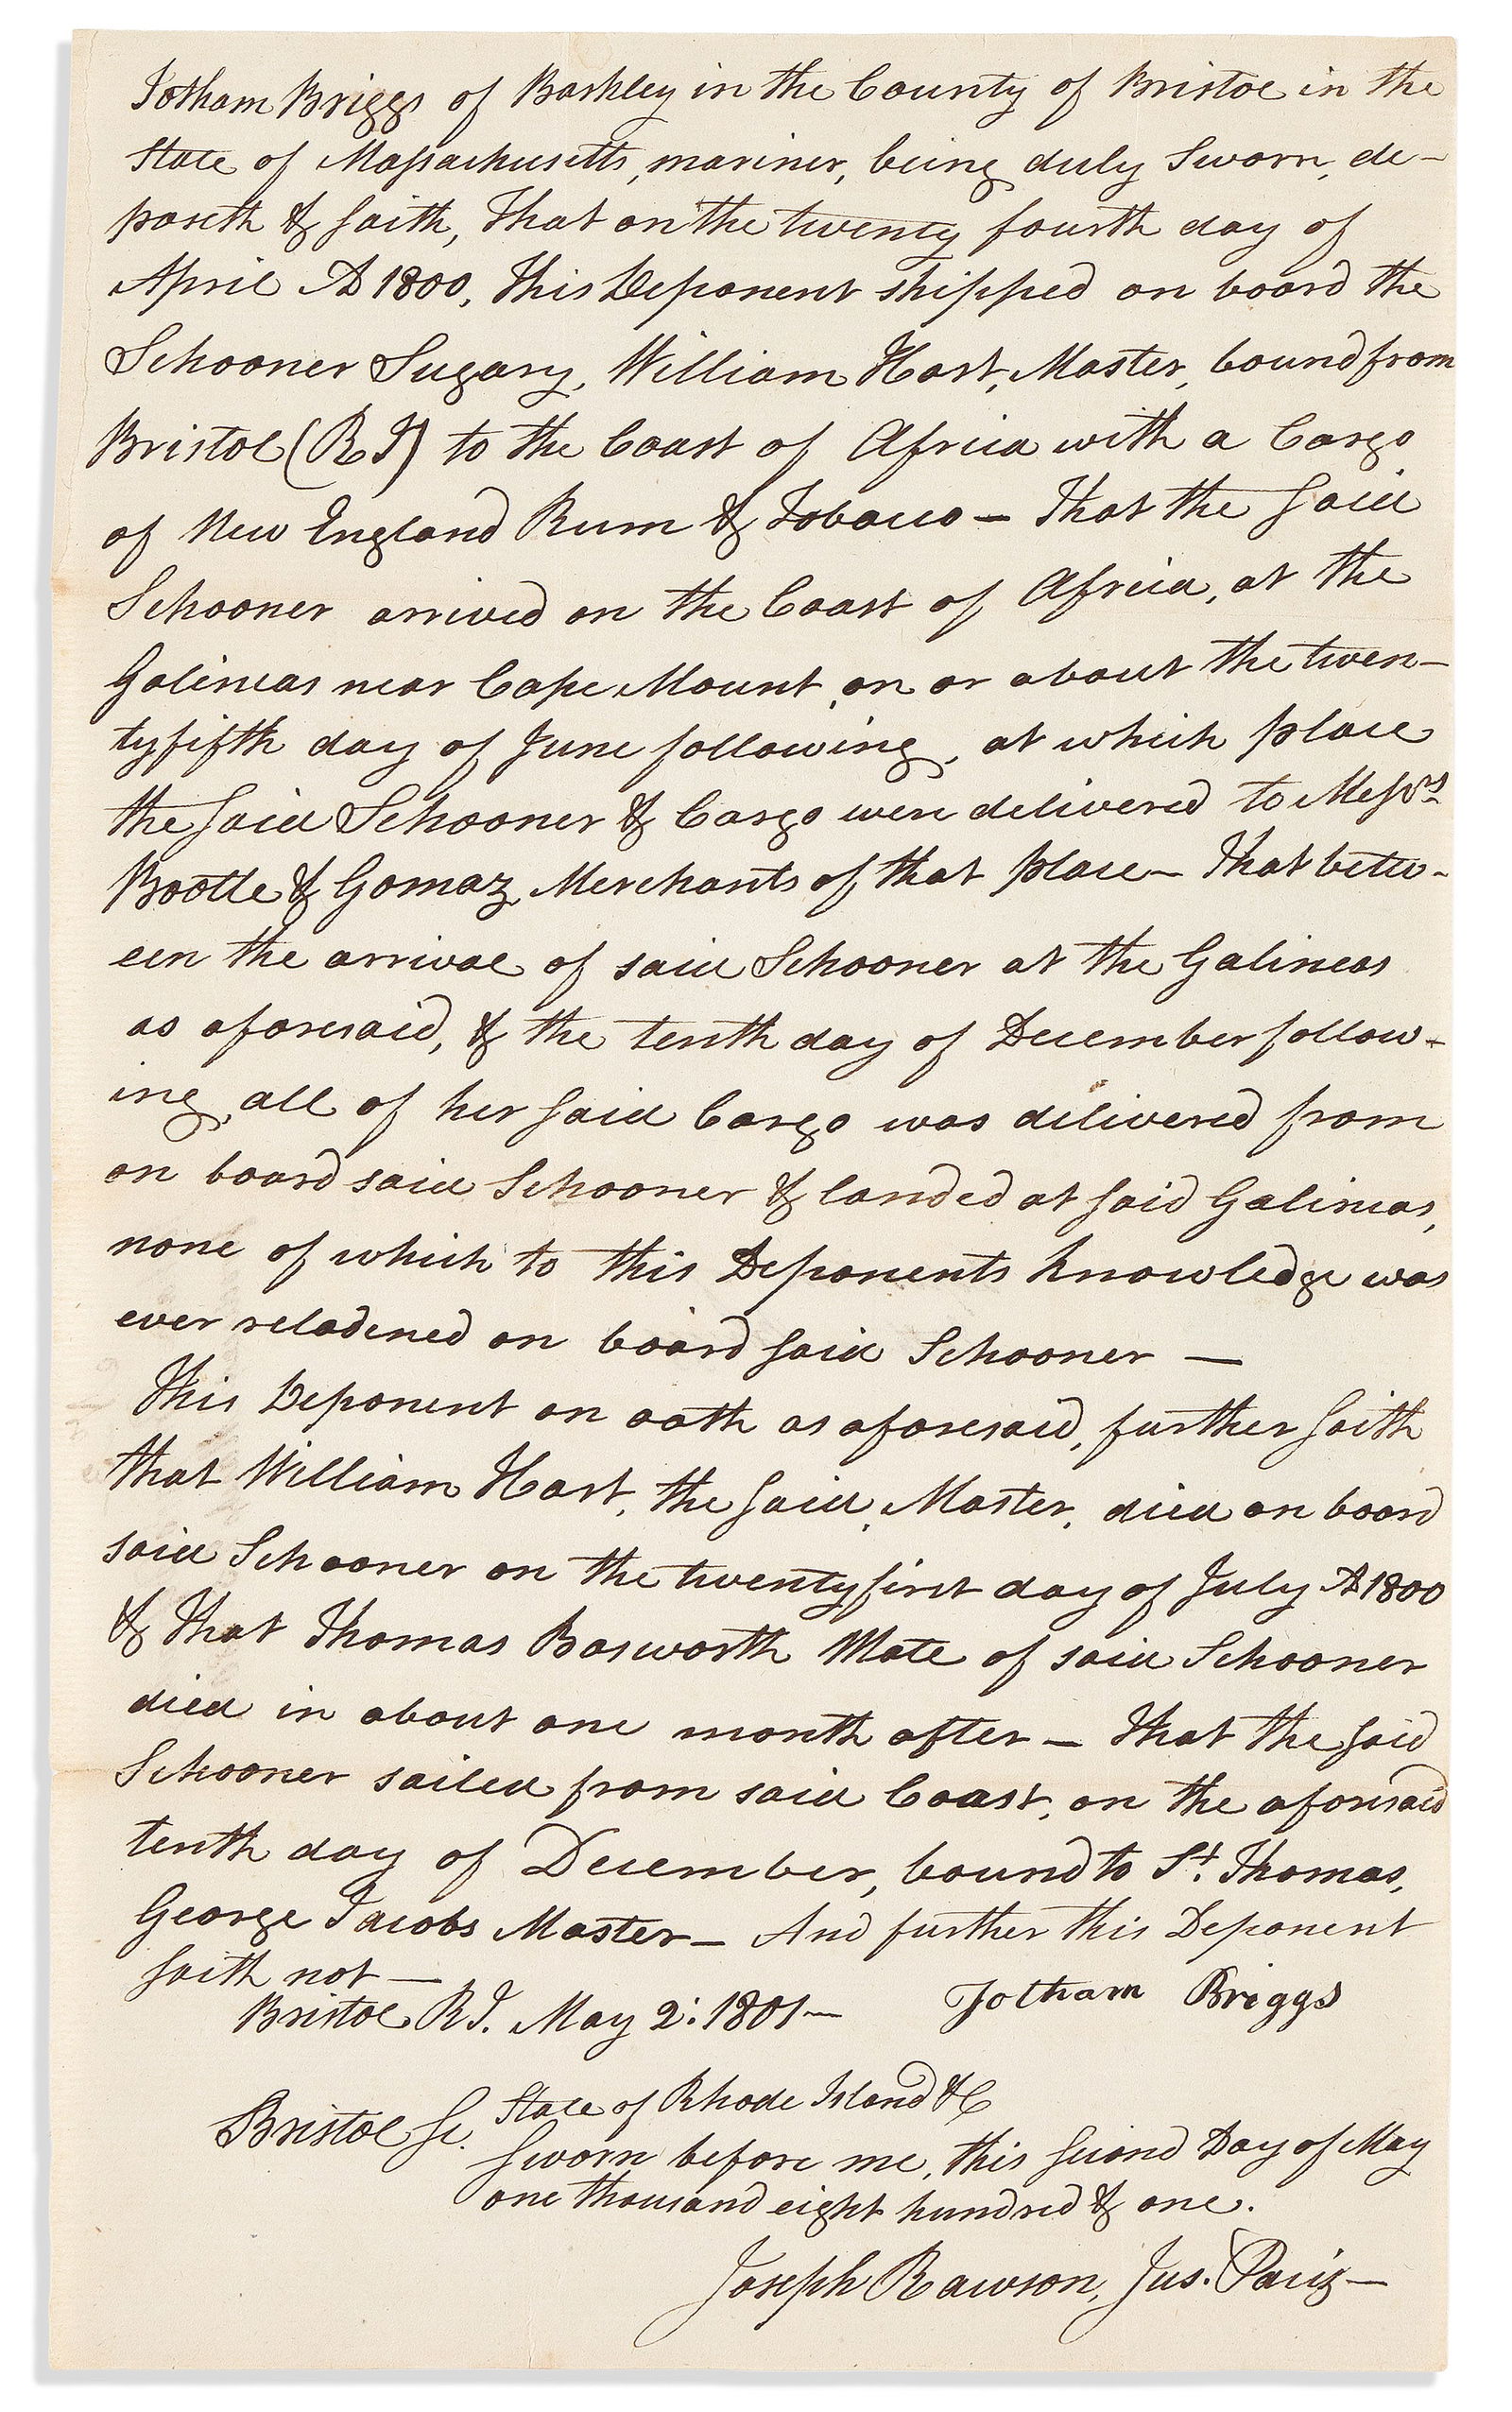 Jotham Briggs of Barkley in the County of Bristol in the
State of Massachusetts, mariner, being duly Sworn, de-
poseth & saith, That on the twenty fourth day of
April AD 1800, This Deponent shipped on board the
Schooner Sugary, William Hart, Master, bound from
Bristol (R I) to the Coast of Africa with a Cargo
of New England Rum & Tobacco — That the said
Schooner arrived on the Coast of Africa, at the
Galineas near Cape Mount, on or about the twen-
tyfifth day of June following, at which place
the said Schooner & Cargo were delivered to Messrs
Bootle & Gomaz, Merchants of that place — That betw-
een the arrival of said Schooner at the Galineas
as aforesaid, & the tenth day of December follow-
ing, all of her said Cargo was delivered from
on board said Schooner & landed at said Galineas,
none of which to this Deponents knowledge was
ever reladened on board said Schooner —
This Deponent on oath as aforesaid, further saith
that William Hart, the said, Master, died on board
said Schooner on the twentyfirst day of July AD 1800
& that Thomas Bosworth Mate of said Schooner
died in about one month after — That the said
Schooner sailed from said Coast, on the aforesaid
tenth day of December, bound to St. Thomas,
George Jacobs Master — And further this Deponent
saith not —
Bristol R I. May 2: 1801 — Jotham Briggs
Bristol Sc. State of Rhode Island &C
Sworn before me, this second Day of May
one thousand eight hundred & one.
Joseph Rawson, Jus. Paciz —